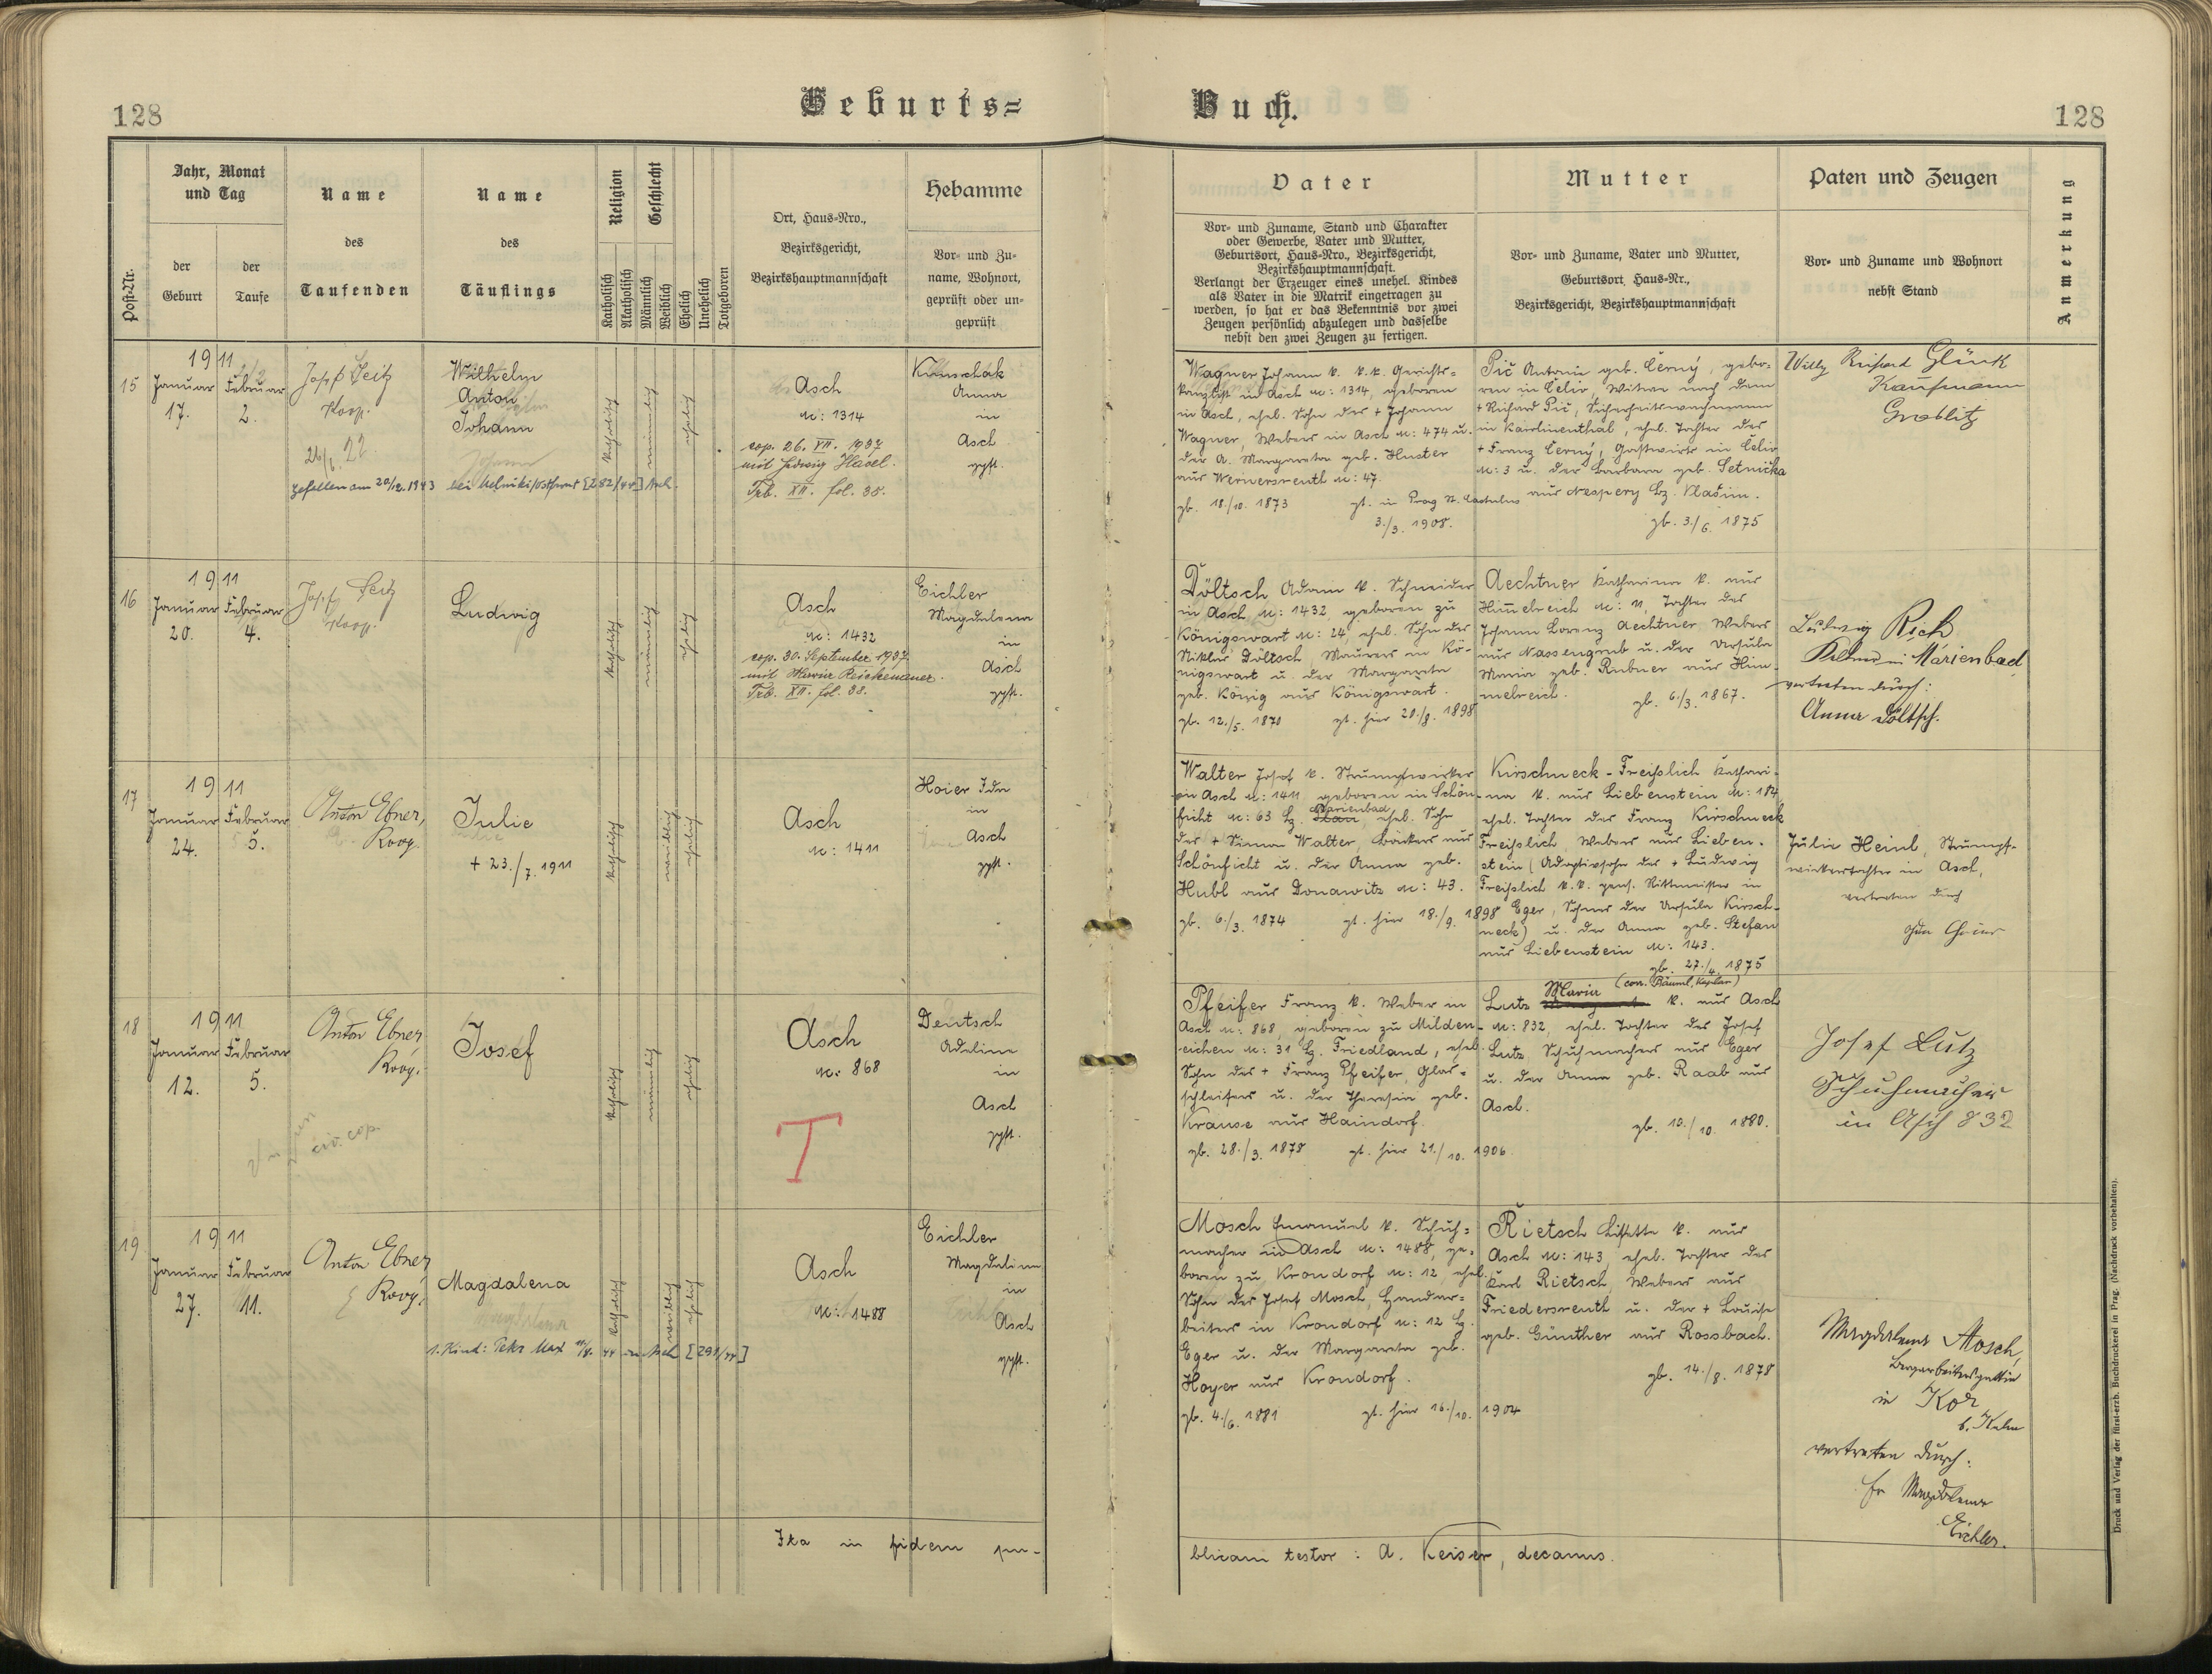 128
Geburts=
Buch.
128
Post-Nr.
Jahr, Monat
und Tag
der
Geburt
der
Taufe
Name
des
Taufenden
Name
des
Täuflings
Religion
Katholisch
Akatholisch
Geschlecht
Männlich
Weiblich
Ehelich
Unehelich
Totgeboren
Ort, Haus-Nro.,
Bezirksgericht,
Bezirkshauptmannschaft
Hebamme
Vor- und Zu-
name, Wohnort,
geprüft oder un-
geprüft
Vater
Vor- und Zuname, Stand und Charakter
oder Gewerbe, Vater und Mutter,
Geburtsort, Haus-Nro., Bezirksgericht,
Bezirkshauptmannschaft.
Verlangt der Erzeuger eines unehel. Kindes
als Vater in die Matrik eingetragen zu
werden, so hat er das Bekenntnis vor zwei
Zeugen persönlich abzulegen und dasselbe
nebst den zwei Zeugen zu fertigen.
Mutter
Vor- und Zuname, Vater und Mutter,
Geburtsort, Haus-Nr.,
Bezirksgericht, Bezirkshauptmannschaft
Paten und Zeugen
Vor- und Zuname und Wohnort
nebst Stand
Anmerkung
15
1911
Januar
17.
Februar
2.
Josef Seitz
Koop.
Wilhelm
Anton
Johann
gefallen am 20/12. 1943 bei [282/44] Asch.
katholisch
männlich
ehelich
Asch
N: 1314
cop. 26. XII. 1937
mit Hedwig Havel.
Trb. XII. fol. 38.
Anna
in
Asch
gpft.
Wagner Johann k. k.k. Gerichts=
kanzlist in Asch N: 1314, geboren
in Asch, ehel. Sohn des + Johann
Wagner, Webers in Asch N: 474 u.
der A. Margareta geb. Huster
aus Wernersreuth N: 47.
gb. 18./10. 1873 gt. in Prag St. Castulus
3./3. 1908.
Pič Antonie geb. Černý, gebo-
ren in Čeliv, Witwe nach dem
+ Richard Pič, Sicherheitswachmann
in Karolinenthal, ehel. Tochter des
+ Franz Černý, Gastwirts in Čeliv
N: 3 u. der Barbara geb. Setnička
aus Nespery Bz. Vlašim.
gb. 3./6. 1875
Willy Richard Glück
Kaufmann
16
1911
Januar
20.
Februar
4.
Josef Seitz
Koop.
Ludwig
katholisch
männlich
ehelich
Asch
N: 1432
cop. 30. September 1937
mit Maria Reichenauer.
Trb. XII. fol. 38.
Eichler
Magdalena
in
Asch
gpft.
Döltsch Adam k. Schneider
in Asch N: 1432, geboren zu
Königswart N: 24, ehel. Sohn des
Niklas Döltsch, Maurers in Kö-
nigswart u. der Margareta
geb. König aus Königswart.
gb. 12./5. 1870 gt. hier 20./8. 1898
Aechtner Katharina k. aus
Himelreich N: 11, Tochter des
Johann Lorenz Aechtner, Webers
aus Nassengrub u. der Ursula
Maria geb. Rubner aus Him-
melreich.
gb. 6./3. 1867.
Ludwig Rich
Kellner in Marienbad
vertreten durch:
Anna Döltsch.
17
1911
Januar
24.
Februar
5.
Anton Ebner,
Koop.
Julie
+ 23./7. 1911
katholisch
weiblich
ehelich
Asch
N: 1411
Hoier Ida
in
Asch
gpft.
Walter Josef k. Strumpfwirker
in Asch N: 1411, geboren in Schön-
ficht N: 63 Bz. Marienbad, ehel. Sohn
des + Simon Walter, Bäckers aus
Schönficht u. der Anna geb.
Hubl aus Donawitz N: 43.
gb. 6./3. 1874 gt. hier 18./9. 1898
Kirschneck-Freißlich Kathari-
na k. aus Liebenstein N: 184
ehel. Tochter des Franz Kirschneck
Freißlich, Webers aus Lieben-
stein (Adoptivsohn des + Ludwig
Freißlich k.k. pens. Rittmeister in
Eger, Sohnes der Ursula Kirsch-
neck) u. der Anna geb. Stefan
aus Liebenstein N: 143.
gb. 27./4. 1875
Julie Heinl, Strumpf-
wirkerstochter in Asch,
vertreten durch
18
1911
Januar
12.
Februar
5.
Anton Ebner
Koop.
civ. cop.
Josef
katholisch
männlich
ehelich
Asch
N: 868
T
Deutsch
Adeline
in
Asch
gpft.
Pfeifer Franz k. Weber in
Asch N: 868, geboren zu Milden-
eichen N: 31 Bz. Friedland, ehel.
Sohn des + Franz Pfeifer, Glas-
schleifers u. der Theresia geb.
Krause aus Haindorf.
gb. 28./3. 1878 gt. hier 21./10. 1906.
Maria (corr. Bäuml, Kaplan)
Lutz k. aus Asch
N: 832, ehel. Tochter des Josef
Lutz, Schuhmachers aus Eger
u. der Anna geb. Raab aus
Asch.
gb. 10./10. 1880.
Josef Lutz
Schuhmacher
in Asch 832
19
1911
Januar
27.
Februar
11.
Anton Ebner
Koop.
Magdalena
1. Kind: Max in Asch [291/44]
katholisch
weiblich
ehelich
Asch
N: 1488
Eichler
Magdalena
in
Asch
gpft.
Mosch Emanuel k. Schuh=
macher in Asch N: 1488, ge-
boren zu Krondorf N: 12, ehel.
Sohn des Josef Mosch, Handar-
beiters in Krondorf N: 12 Bz.
Eger u. der Margareta geb.
Hoyer aus Krondorf.
gb. 4./6. 1881 gt. hier 16./10. 1904
Rietsch Lisette k. aus
Asch N: 143, ehel. Tochter des
Karl Rietsch, Webers aus
Friedersreuth u. der + Louise
geb. Günther aus Rossbach.
gb. 14./8. 1878
Magdalena Mosch,
Bergarbeitersgattin
in
vertreten durch:
Fr Magdalena
Eichler.
Ita in fidem pu-
blicam testor: A. Keiser, decanus.
Druck und Verlag der fürst-erzb. Buchdruckerei in Prag. (Nachdruck vorbehalten).